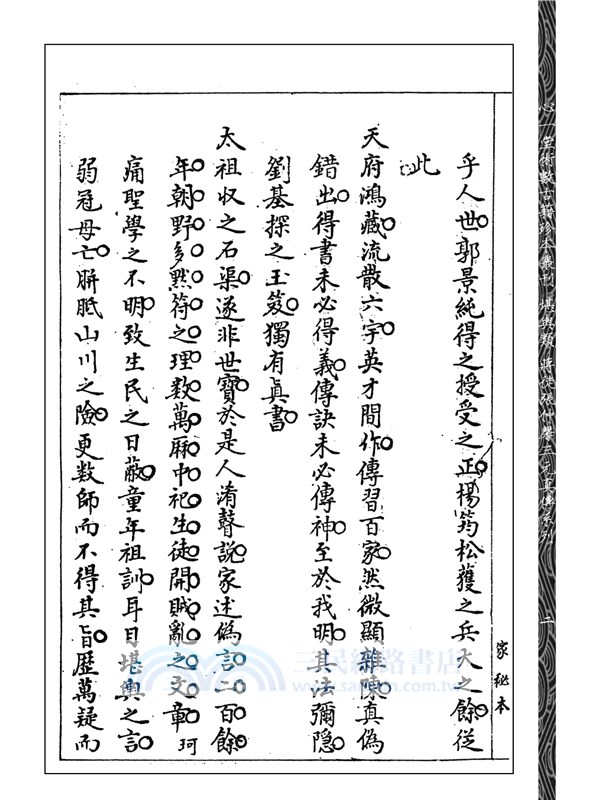 乎人世郭景純得之授受之正楊筠松獲之兵火之餘從
此
天府鴻藏流散六宇英才間作傳習百家然微顯雜陳真偽
錯出得書未必得義傳訣未必傳神至於我明其法彌隱
劉基探之玉笈獨有真書
太祖收之石渠遂非世寶於是人淆聲說家述偽言二百餘
年朝野多黙符之理数萬厤中祀生徒開賊亂之文章珂
痛聖學之不明致生民之日蔽童年祖訓耳目堪輿之言
弱冠母亡胼胝山川之險更数師而不得其旨歷萬疑而
家秘本
心一堂術數古籍珍本叢刊 堪輿類
二
三民網路書店
www.sanmin.com.tw